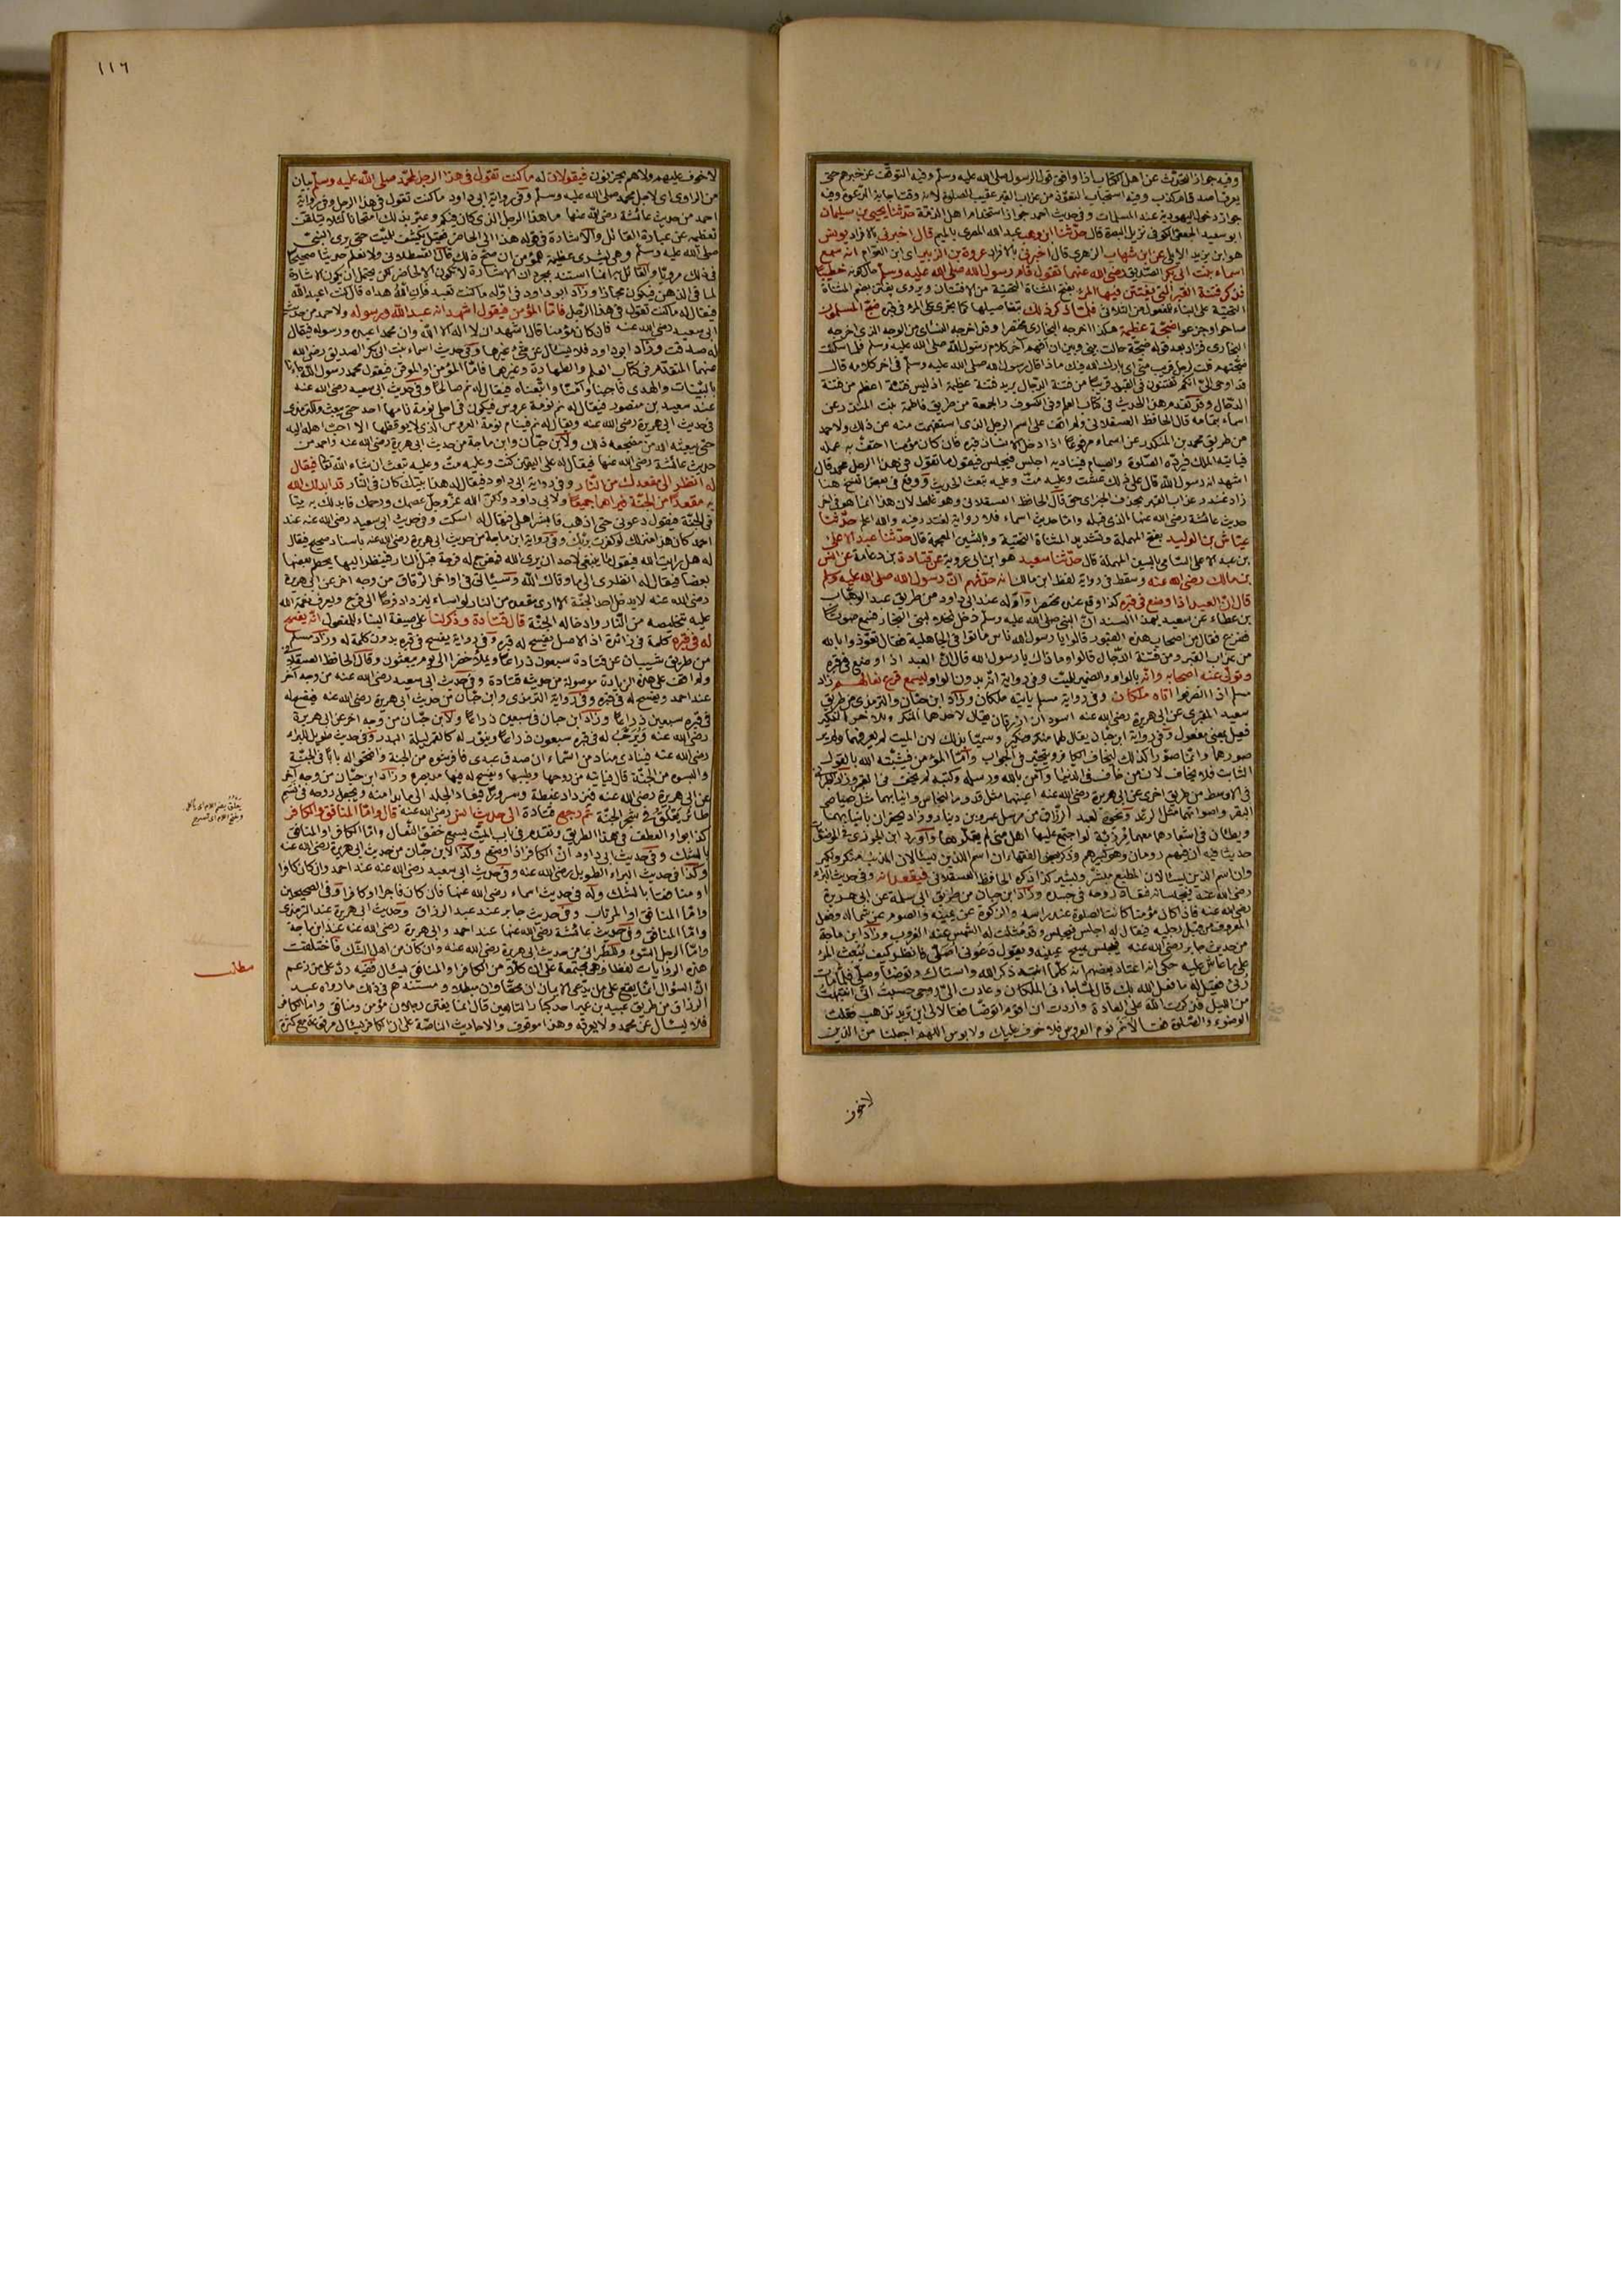 وفيه جواز التحدث عن اهل الكتاب اذا وافق قول الرسول صلى الله عليه وسلم وفيه التوقف عن خبرهم حتى
يعرف اصدق ام كذب وفيه استحباب التعوذ من عذاب القبر عقيب الصلوة لانه وقت اجابة الدعوة وفيه
جواز دخول اليهودية عند المسلمات وفي حديث احمد جواز استخدام اهل الذمة حدثنا يحيى بن سليمان
ابو سعيد الجعفي الكوفي نزيل البصرة قال حدثنا ابن وهب عبد الله المصري بالميم قال اخبرني بالافراد يونس
هو ابن يزيد الايلي عن ابن شهاب الزهري قال اخبرني بالافراد عروة بن الزبير اي ابن العوام انه سمع
اسماء بنت ابي بكر الصديق رضي الله عنهما تقول قام رسول الله صلى الله عليه وسلم حال كونه خطيبا
فذكر فتنة القبر التي يفتتن فيها المرء بفتح المثناة التحتية من الافتتان ويروى يفتن بضم المثناة
التحتية على البناء للمفعول من الثلاثي فلما ذكر ذلك بتفاصيلها كما يجري على المرء في قبره ضج المسلمون
صاحوا وجزعوا ضجة عظيمة هكذا اخرجه البخاري مختصرا وقد اخرجه النسائي من الوجه الذي اخرجه
البخاري فزاد بعد قوله ضجة حالت بيني وبين ان افهم آخر كلام رسول الله صلى الله عليه وسلم فلما سكنت
ضجتهم قلت لرجل قريب مني اي بارك الله فيك ماذا قال رسول الله صلى الله عليه وسلم في اخر كلامه قال
قد اوحي الي انكم تفتنون في القبور قريبا من فتنة الدجال يريد فتنة عظيمة اذ ليس فتنة اعظم من فتنة
الدجال وقد تقدم هذا الحديث في كتاب العلم وفي الكسوف والجمعة من طريق فاطمة بنت المنذر عن
اسماء بتمامه قال الحافظ العسقلاني ولم اقف على اسم الرجل الذي استفهمت منه عن ذلك ولاحمد
من طريق محمد بن المنكدر عن اسماء مرفوعا اذا دخل الانسان قبره فان كان مؤمنا احتف به عمله
فيأتيه الملك فترده الصلوة والصيام فيناديه اجلس فيجلس فيقول ما تقول في هذا الرجل محمد قال
اشهد انه رسول الله قال على ذلك عشت وعليه مت وعليه تبعث الحديث ووقع في بعض النسخ هنا
زاد غندر عذاب القبر بحذف الخبر اي حق قال الحافظ العسقلاني وهو غلط لان هذا انما هو في اخر
حديث عائشة رضي الله عنها الذي قبله واما حديث اسماء فلا رواية لغندر فيه والله اعلم حدثنا
عياش بن الوليد بفتح المهملة وتشديد المثناة التحتية وبالشين المعجمة قال حدثنا عبد الاعلى
بن عبد الاعلى السامي بالسين المهملة قال حدثنا سعيد هو ابن ابي عروبة عن قتادة بن دعامة عن انس
بن مالك رضي الله عنه وسقط في رواية لفظ ابن مالك انه حدثهم ان رسول الله صلى الله عليه وسلم
قال ان العبد اذا وضع في قبره كذا وقع عنده مختصرا واوله عند ابي داود من طريق عبد الوهاب
بن عطاء عن سعيد بهذا السند ان النبي صلى الله عليه وسلم دخل نخلا لبني النجار فسمع صوتا
ففزع فقال من اصحاب هذه القبور قالوا يا رسول الله ناس ماتوا في الجاهلية فقال تعوذوا بالله
من عذاب القبر ومن فتنة الدجال قالوا وما ذاك يا رسول الله قال ان العبد اذا وضع في قبره
وتولى عنه اصحابه وانه بالواو والضمير للميت وفي رواية انه بدون الواو ليسمع قرع نعالهم زاد
مسلم اذا انصرفوا اتاه ملكان وفي رواية مسلم يأتيه ملكان وزاد ابن حبان والترمذي من طريق
سعيد المقبري عن ابي هريرة رضي الله عنه اسودان ازرقان يقال لاحدهما المنكر وللاخر النكير
فعيل بمعنى مفعول وفي رواية ابن حبان يقال لهما منكر ونكير وسميا بذلك لان الميت لم يعرفهما ولم ير
صورهما وانما صورا كذلك ليخاف الكافر ويتحير في الجواب واما المؤمن فيثبته الله بالقول
الثابت فلا يخاف لان من خاف في الدنيا وآمن بالله ورسله وكتبه لم يخف في القبر وزاد الطبراني
في الاوسط من طريق اخرى عن ابي هريرة رضي الله عنه اعينهما مثل قدور النحاس وانيابهما مثل صياصي
البقر واصواتهما مثل الرعد ونحوه لعبد الرزاق من مرسل عمرو بن دينار وزاد يحفران بانيابهما
ويطئان في اشعارهما معهما مرزبة لو اجتمع عليها اهل منى لم يقلوها واورد ابن الجوزي في الموضوعات
حديثا فيه ان فيهم رومان وهو كبيرهم وذكر بعض الفقهاء ان اسم اللذين يسئلان المذنب منكر ونكير
وان اسم الذين يسئلان المطيع مبشر وبشير كذا ذكره الحافظ العسقلاني فيقعدانه وفي حديث البراء
رضي الله عنه فيجلسانه فتعاد روحه في جسده وزاد ابن حبان من طريق ابي سلمة عن ابي هريرة
رضي الله عنه فاذا كان مؤمنا كانت الصلوة عند راسه والزكوة عن يمينه والصوم عن شماله وفعل
المعروف من قبل رجليه فيقال له اجلس فيجلس وقد مثلت له الشمس عند الغروب وزاد ابن ماجة
من حديث جابر رضي الله عنه فيجلس يمسح عينيه ويقول دعوني اصلي فانظر كيف يبعث المرء
على ما عاش عليه حكي انه اعتاد بعضهم انه كلما انتبه ذكر الله واستاك وتوضأ وصلى فلما مات
رئي فقيل له ما فعل الله بك قال لما جاءني الملكان وعادت الي روحي حسبت اني انتبهت
من الليل فذكرت الله على العادة واردت ان اقوم اتوضأ فقالا لي اين تريد تذهب فقلت
الوضوء والصلوة فقالا نم نوم العروس فلا خوف عليك ولا بؤس اللهم اجعلنا من الذين
لا خوف
١١٦
لا خوف عليهم ولا هم يحزنون فيقولان له ما كنت تقول في هذا الرجل لمحمد صلى الله عليه وسلم بيان
من الراوي اي لاجل محمد صلى الله عليه وسلم وفي رواية ابي داود ما كنت تقول في هذا الرجل وفي رواية
احمد من حديث عائشة رضي الله عنها ما هذا الرجل الذي كان فيكم وعبر بذلك امتحانا لئلا يتلقن
تعظيمه عن عبارة القائل والاشارة في قوله هذا الى الحاضر فقيل يكشف للميت حتى يرى النبي
صلى الله عليه وسلم وهي بشرى عظيمة للمؤمن ان صح ذلك قال القسطلاني ولا نعلم حديثا صحيحا
في ذلك مرويا والقائل به انما استند بمجرد ان الاشارة لا تكون الا لحاضر لكن يحتمل ان يكون الاشارة
لما في الذهن فيكون مجازا وزاد ابو داود في اوله ما كنت تعبد فان الله هداه قال كنت اعبد الله
فيقال له ما كنت تقول في هذا الرجل فاما المؤمن فيقول اشهد انه عبد الله ورسوله ولاحمد من حديث
ابي سعيد رضي الله عنه فان كان مؤمنا قال اشهد ان لا اله الا الله وان محمدا عبده ورسوله فيقال
له صدقت وزاد ابو داود فلا يسئل عن شيء غيرها وفي حديث اسماء بنت ابي بكر الصديق رضي الله
عنهما المتقدم في كتاب العلم والطهارة وغيرهما فاما المؤمن او الموقن فيقول محمد رسول الله جاءنا
بالبينات والهدى فاجبنا وآمنا واتبعناه فيقال له نم صالحا وفي حديث ابي سعيد رضي الله عنه
عند سعيد بن منصور فيقال له نم نومة عروس فيكون في احلى نومة نامها احد حتى يبعث وللترمذي
في حديث ابي هريرة رضي الله عنه ويقال له نم فينام نومة العروس الذي لا يوقظها الا احب اهله اليه
حتى يبعثه الله من مضجعه ذلك ولابن حبان وابن ماجة من حديث ابي هريرة رضي الله عنه واحمد من
حديث عائشة رضي الله عنها فيقال له على اليقين كنت وعليه مت وعليه تبعث ان شاء الله تعالى فيقال
له انظر الى مقعدك من النار وفي رواية ابي داود فيقال له هذا بيتك كان في النار قد ابدلك الله
به مقعدا من الجنة فيراهما جميعا ولابي داود ولكن الله عز وجل عصمك ورحمك فابدلك به بيتا
في الجنة فيقول دعوني حتى اذهب فابشر اهلي فيقال له اسكت وفي حديث ابي سعيد رضي الله عنه عند
احمد كان هذا منزلك لو كفرت بربك وفي رواية ابن ماجة من حديث ابي هريرة رضي الله عنه باسناد صحيح فيقال
له هل رايت الله فيقول ما ينبغي لاحد ان يرى الله فيفرج له فرجة قبل النار فينظر اليها يحطم بعضها
بعضا فيقال له انظر الى ما وقاك الله وسيأتي في اواخر الرقاق من وجه اخر عن ابي هريرة
رضي الله عنه لا يدخل احد الجنة الا اري مقعده من النار لو اساء ليزداد فرحا الى فرح ويعرف نعمة الله
عليه بتخليصه من النار وادخاله الجنة قال قتادة وذكر لنا على صيغة البناء للمفعول انه يفسح
له في قبره كلمة في زائدة اذ الاصل يفسح له قبره وفي رواية يفسح في قبره بدون كلمة له وزاد مسلم
من طريق شيبان عن قتادة سبعون ذراعا ويملأ خضرا الى يوم يبعثون وقال الحافظ العسقلاني
ولم اقف على هذه الزيادة موصولة من حديث قتادة وفي حديث ابي سعيد رضي الله عنه من وجه آخر
عند احمد ويفسح له في قبره وفي رواية الترمذي وابن حبان من حديث ابي هريرة رضي الله عنه فيفسح له
في قبره سبعين ذراعا وزاد ابن حبان في سبعين ذراعا ولابن حبان من وجه اخر عن ابي هريرة
رضي الله عنه ويرحب له في قبره سبعون ذراعا وينور له كالقمر ليلة البدر وفي حديث طويل للبراء
رضي الله عنه فينادي مناد من السماء ان صدق عبدي فافرشوه من الجنة وافتحوا له بابا في الجنة
والبسوه من الجنة قال فيأتيه من روحها وطيبها ويفسح له فيها مد بصره وزاد ابن حبان من وجه آخر
عن ابي هريرة رضي الله عنه فيزداد غبطة وسرورا فيعاد الجلد الى ما بدا منه ويجعل روحه في نسم
طائر يعلق في شجر الجنة ثم رجع قتادة الى حديث انس رضي الله عنه قال واما المنافق والكافر
كذا بواو العطف في هذا الطريق وتقدم في باب الميت يسمع خفق النعال واما الكافر او المنافق
بالشك وفي حديث ابي داود ان الكافر اذا وضع وكذا لابن حبان من حديث ابي هريرة رضي الله عنه
وكذا في حديث البراء الطويل رضي الله عنه وفي حديث ابي سعيد رضي الله عنه عند احمد وان كان كافرا
او منافقا بالشك وله في حديث اسماء رضي الله عنها فان كان فاجرا او كافرا وفي الصحيحين
واما المنافق او المرتاب وفي حديث جابر عند عبد الرزاق وحديث ابي هريرة عند الترمذي
واما المنافق وفي حديث عائشة رضي الله عنها عند احمد وابي هريرة رضي الله عنه عند ابن ماجة
واما الرجل السوء وللطبراني من حديث ابي هريرة رضي الله عنه وان كان من اهل الشك فاختلفت
هذه الروايات لفظا وهي مجتمعة على ان كلا من الكافر او المنافق يسئل ففيه رد على من زعم
ان السؤال انما يقع على من يدعي الايمان ان محقا وان مبطلا ومستندهم في ذلك ما رواه عبد
الرزاق من طريق عبيد بن عمير احد كبار التابعين قال انما يفتن رجلان مؤمن ومنافق واما الكافر
فلا يسئل عن محمد ولا يعرفه وهذا موقوف والاحاديث الناصة على ان الكافر يسئل مرفوعة مع كثرة
مطلب